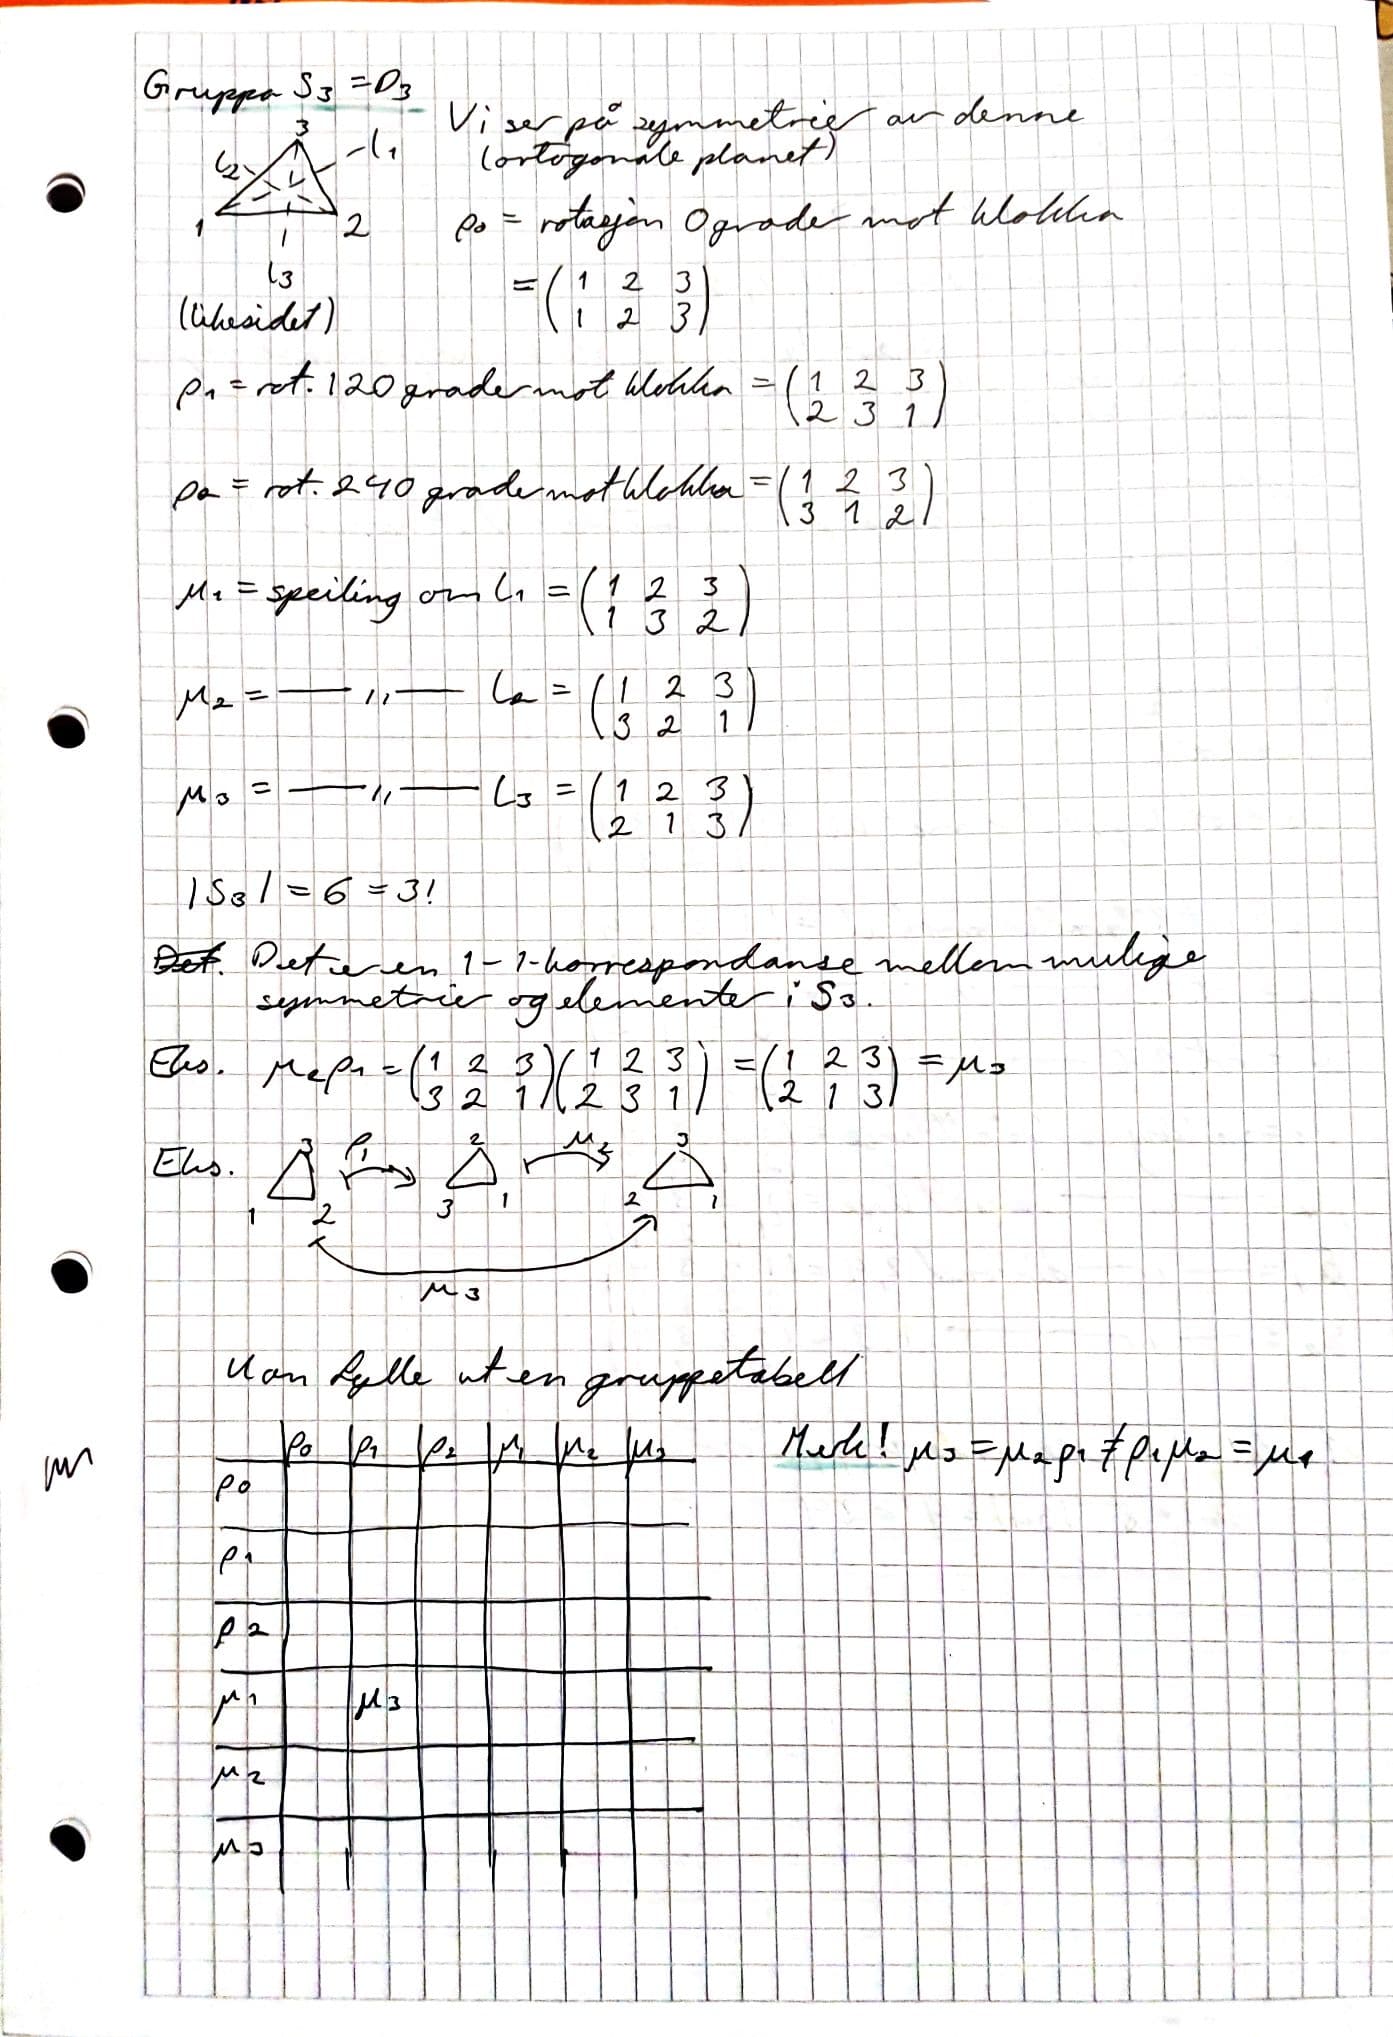 Gruppa S3 = D3
3
l1
l2
1
2
l3
(likesidet)
Vi ser på symmetrier av denne
(ortogonale planet)
ρ0 = rotasjon 0 grader mot klokka
= (1 2 3
1 2 3)
ρ1 = rot. 120 grader mot klokka = (1 2 3
2 3 1)
ρ2 = rot. 240 grader mot klokka = (1 2 3
3 1 2)
μ1 = speiling om l1 = (1 2 3
1 3 2)
μ2 = —— ,, —— l2 = (1 2 3
3 2 1)
μ3 = —— ,, —— l3 = (1 2 3
2 1 3)
|S3| = 6 = 3!
Det er en 1-1-korrespondanse mellom mulige
symmetrier og elementer i S3.
Eks. μ2ρ1 = (1 2 3)(1 2 3) = (1 2 3) = μ3
(3 2 1)(2 3 1) (2 1 3)
Eks. 3 ρ1 2 μ2 3
1 2 3 1 2 1
μ3
Kan fylle ut en gruppetabell
ρ0 ρ1 ρ2 μ1 μ2 μ3
Merk! μ3 = μ2ρ1 ≠ ρ1μ2 = μ1
ρ0
ρ1
ρ2
μ1 μ3
μ2
μ3